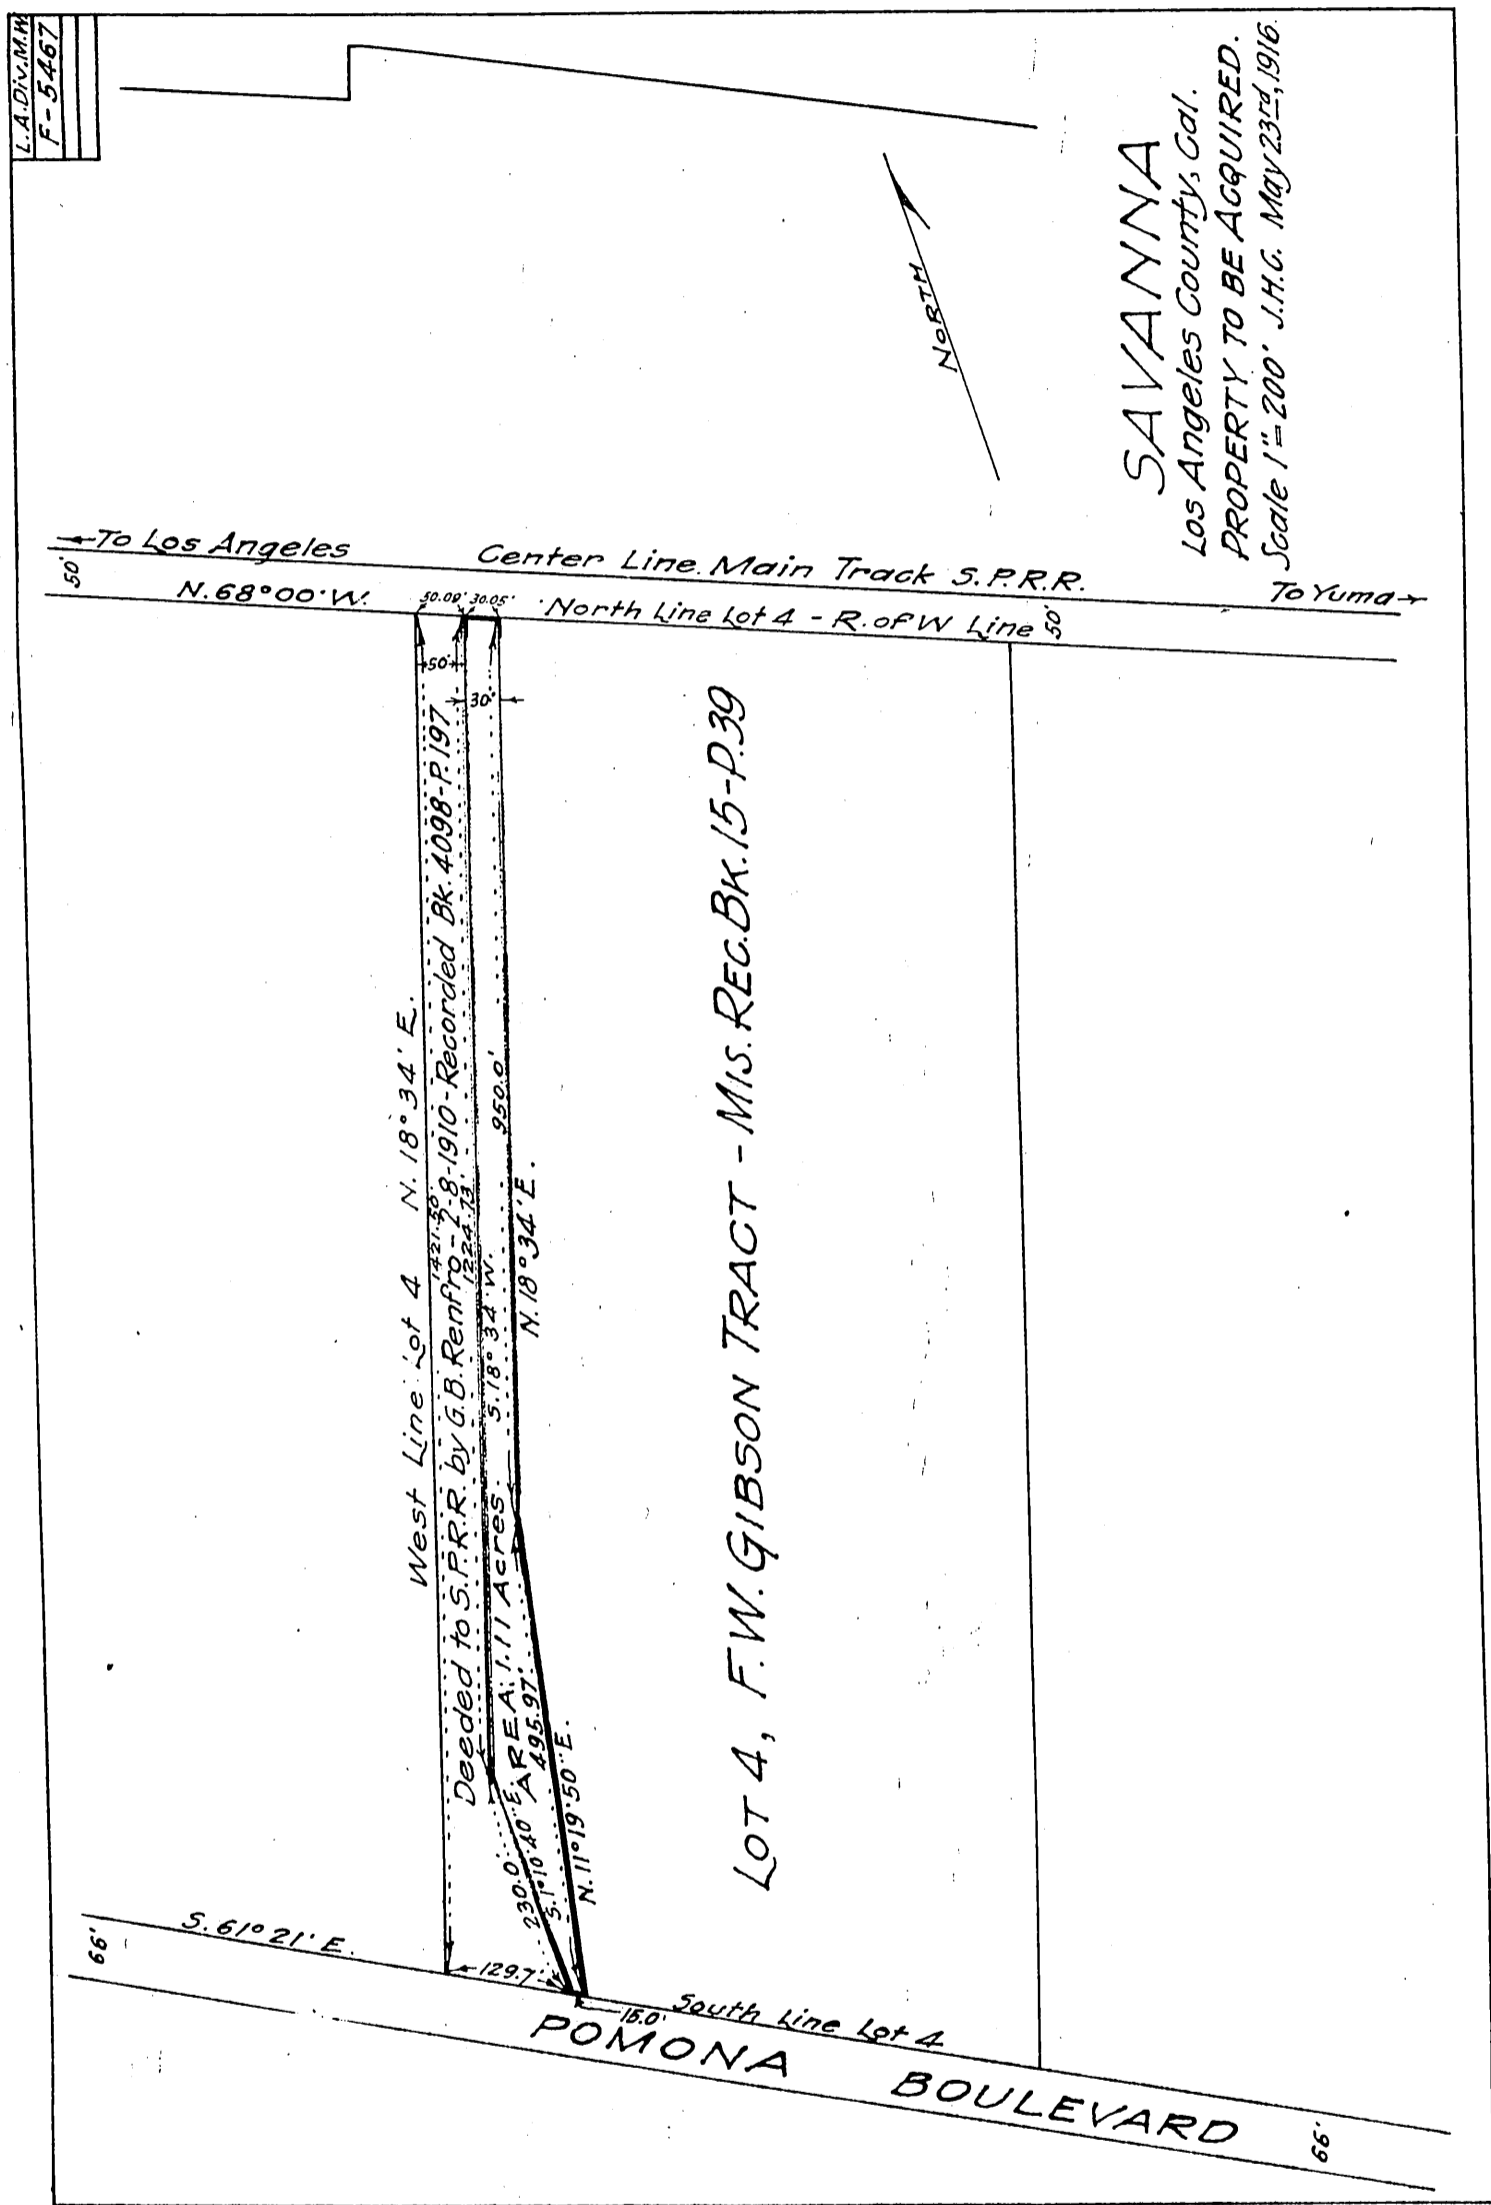 L.A.Div.M.W
F-5467
SAVANNA
Los Angeles County, Cal.
PROPERTY TO BE ACQUIRED.
Scale 1"=200' J.H.G. May 23rd, 1916.
NORTH
To Los Angeles
Center Line Main Track S.P.R.R.
To Yuma
50'
N.68°00'W.
50.09'
30.05'
North Line Lot 4 - R.of W Line
50'
50'
30'
West Line Lot 4 N.18°34'E.
1421.50'
Deeded to S.P.R.R. by G.B.Renfro-2-8-1910-Recorded Bk.4098-P.197
1224.73'
S.18°34'W.
950.0'
N.18°34'E.
AREA: 1.11 Acres
495.97'
230.0'
S.1°10'40"E.
N.11°19'50"E.
LOT 4, F.W.GIBSON TRACT - MIS.REC.BK.15-P.39
S.61°21'E.
66'
129.7'
15.0'
South Line Lot 4
POMONA BOULEVARD
66'